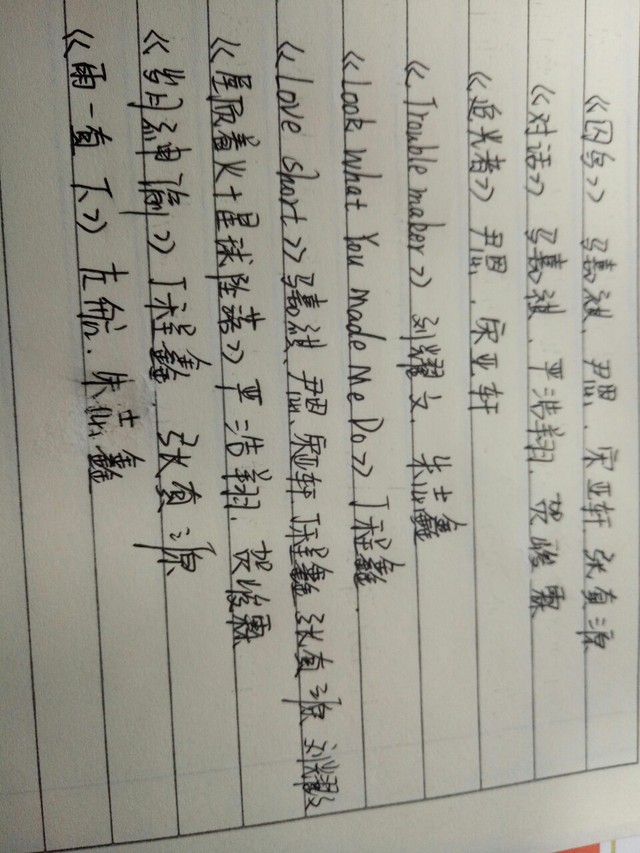 《囚鸟》 马嘉祺、尹恩、宋亚轩、张真源
《对话》 马嘉祺、严浩翔、贺峻霖
《追光者》 尹恩、宋亚轩
《Trouble maker》 刘耀文、朱志鑫
《Look What You Made Me Do》 丁程鑫
《Love short》 马嘉祺、尹恩、宋亚轩、丁程鑫、张真源、刘耀文
《星辰着火+星球坠落》 严浩翔、贺峻霖
《岁月神偷》 丁程鑫、张真源
《雨一直下》 左航、朱志鑫